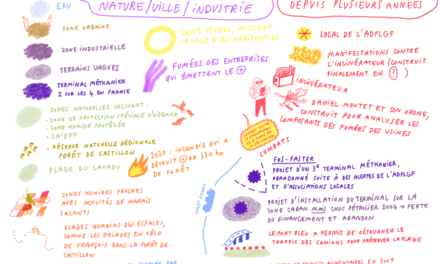 NATURE/VILLE/INDUSTRIE
DEPUIS PLUSIEURS ANNÉES
EAU
ZONE URBAINE
ZONE INDUSTRIELLE
TERRAINS VAGUES
TERMINAL MÉTHANIER
2 SUR LES 4 EN FRANCE
ZONES NATURELLES INCLUANT :
- ZONE DE PROTECTION SPÉCIALE D'OISEAUX
- ZONE HUMIDE PROTÉGÉE
- ZNIEFF
. RÉSERVE NATURELLE RÉGIONALE
FORÊT DE CASTILLON
PLAGE DU CAVAOU
ZONES HUMIDES
AVEC ACTIVITÉS DE MARAIS
SALANTS
USAGES HUMAINS DES ESPACES,
COMME LES BALADES EN VÉLO
DE FRANÇOIS DANS LA FORÊT DE
CASTILLON
ZONE SEVESO, INCLUANT
LA VILLE D'UN HABITANT ET
FUMÉES DES ENTREPRISES
QUI ÉMETTENT LE
2020 : INCENDIE QUI A
DÉTRUIT + DE 330 ha
DE FORÊT
LOCAL DE L'ADPLGF
MANIFESTATIONS CONTRE
L'INCINÉRATEUR (CONSTRUIT
FINALEMENT EN ?)
INCINÉRATEUR
DANIEL MOUTET ET SON DRONE,
CONSTRUIT POUR ANALYSER LES
COMPOSANTS DES FUMÉES DES USINES
COMBATS
FOS-FASTER
PROJET D'UN 3e TERMINAL MÉTHANIER,
ABANDONNÉ SUITE À DES ALERTES DE L'ADPLGF
ET D'ASSOCIATIONS LOCALES
PROJET D'INSTALLATION DU TERMINAL SUR LA
ZONE CABAN MAIS CHOC PÉTROLIER 2009 → PERTE
DU FINANCEMENT ET ABANDON
LE PONT BLEU A PERMIS DE DÉTOURNER LE
TRAFFIC DES CAMIONS POUR PRÉSERVER LA PLAGE